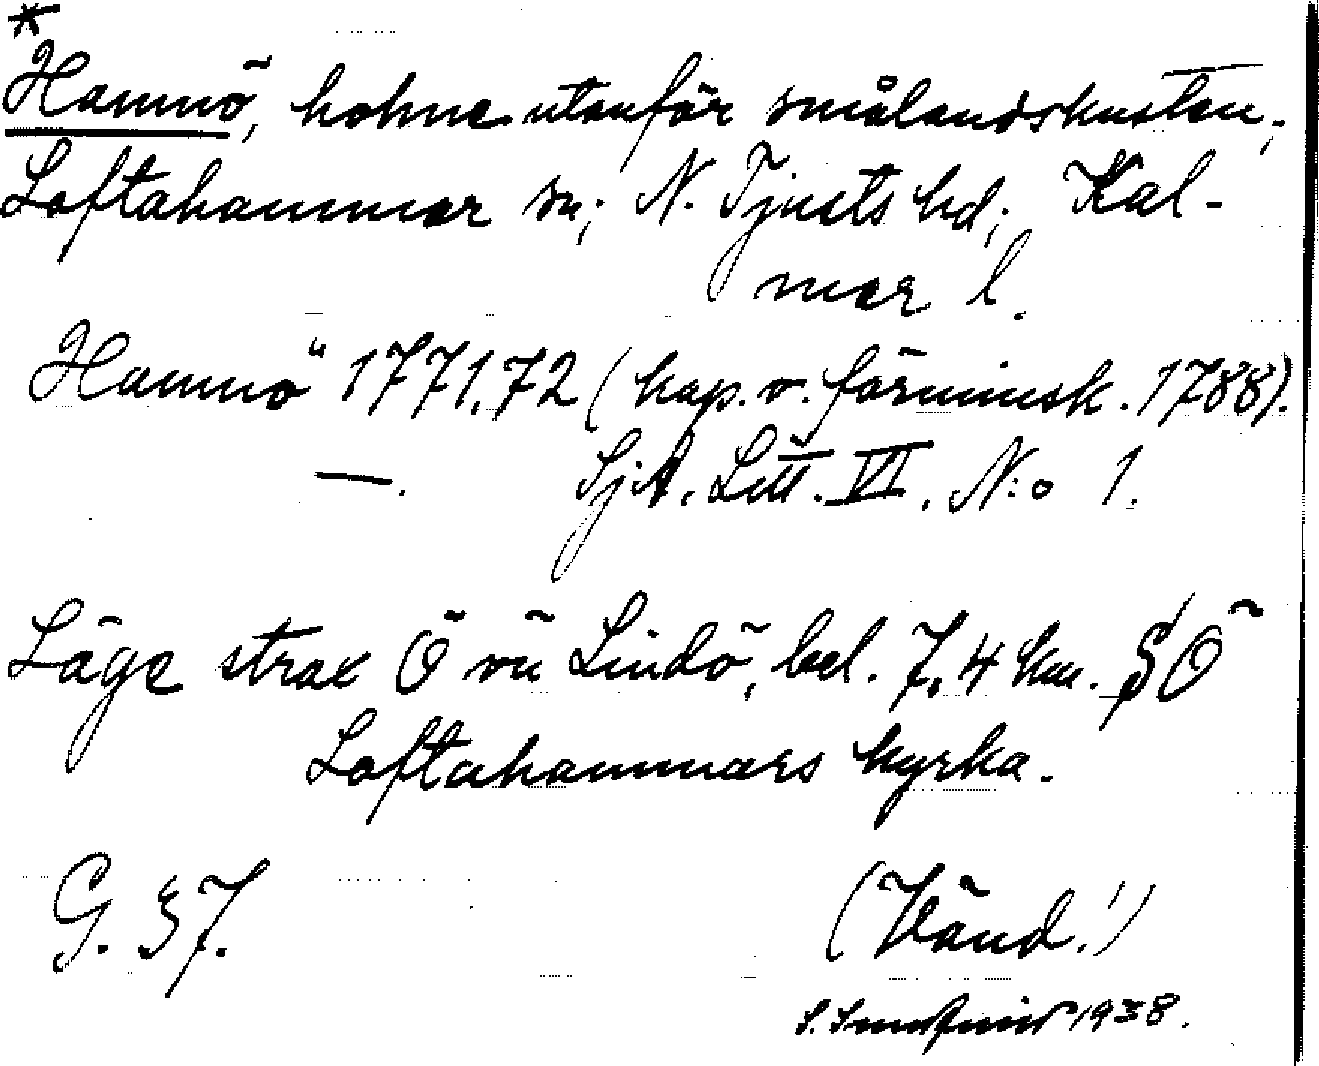 *
Hamnö, holme utanför smålandskusten,
Loftahammar sn; N. Tjusts hd; Kal-
mar l.
Hamnö 1771.72 (kop. o. förminsk. 1788).
—. SjA. Litt. VI. N:o 1.
Läge strax Ö om Lindö, bel. 7,4 km. SÖ
Loftahammars kyrka.
G. 37. (Vänd!)
S. 1938.